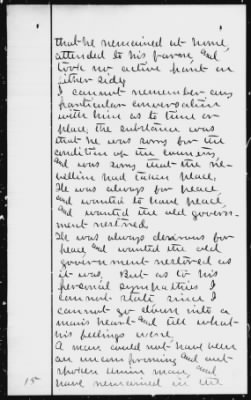 that he remained at home,
attended to his farm, and
took no active part on
either side
I cannot remember any
particular conversation
with him as to time or
place, the substance was
that he was sorry for the
condition of the country,
and was sorry that the re-
bellion had taken place.
He was always for peace
and wanted to have peace,
and wanted the old govern-
ment restored.
He was always desirous for
peace and wanted the old
government restored as
it was. But as to his
personal sympathies I
cannot state since I
cannot go down into a
man's heart and tell what
his feelings were.
A man could not have been
an uncompromising and out-
spoken Union man, and
have remained in the
15